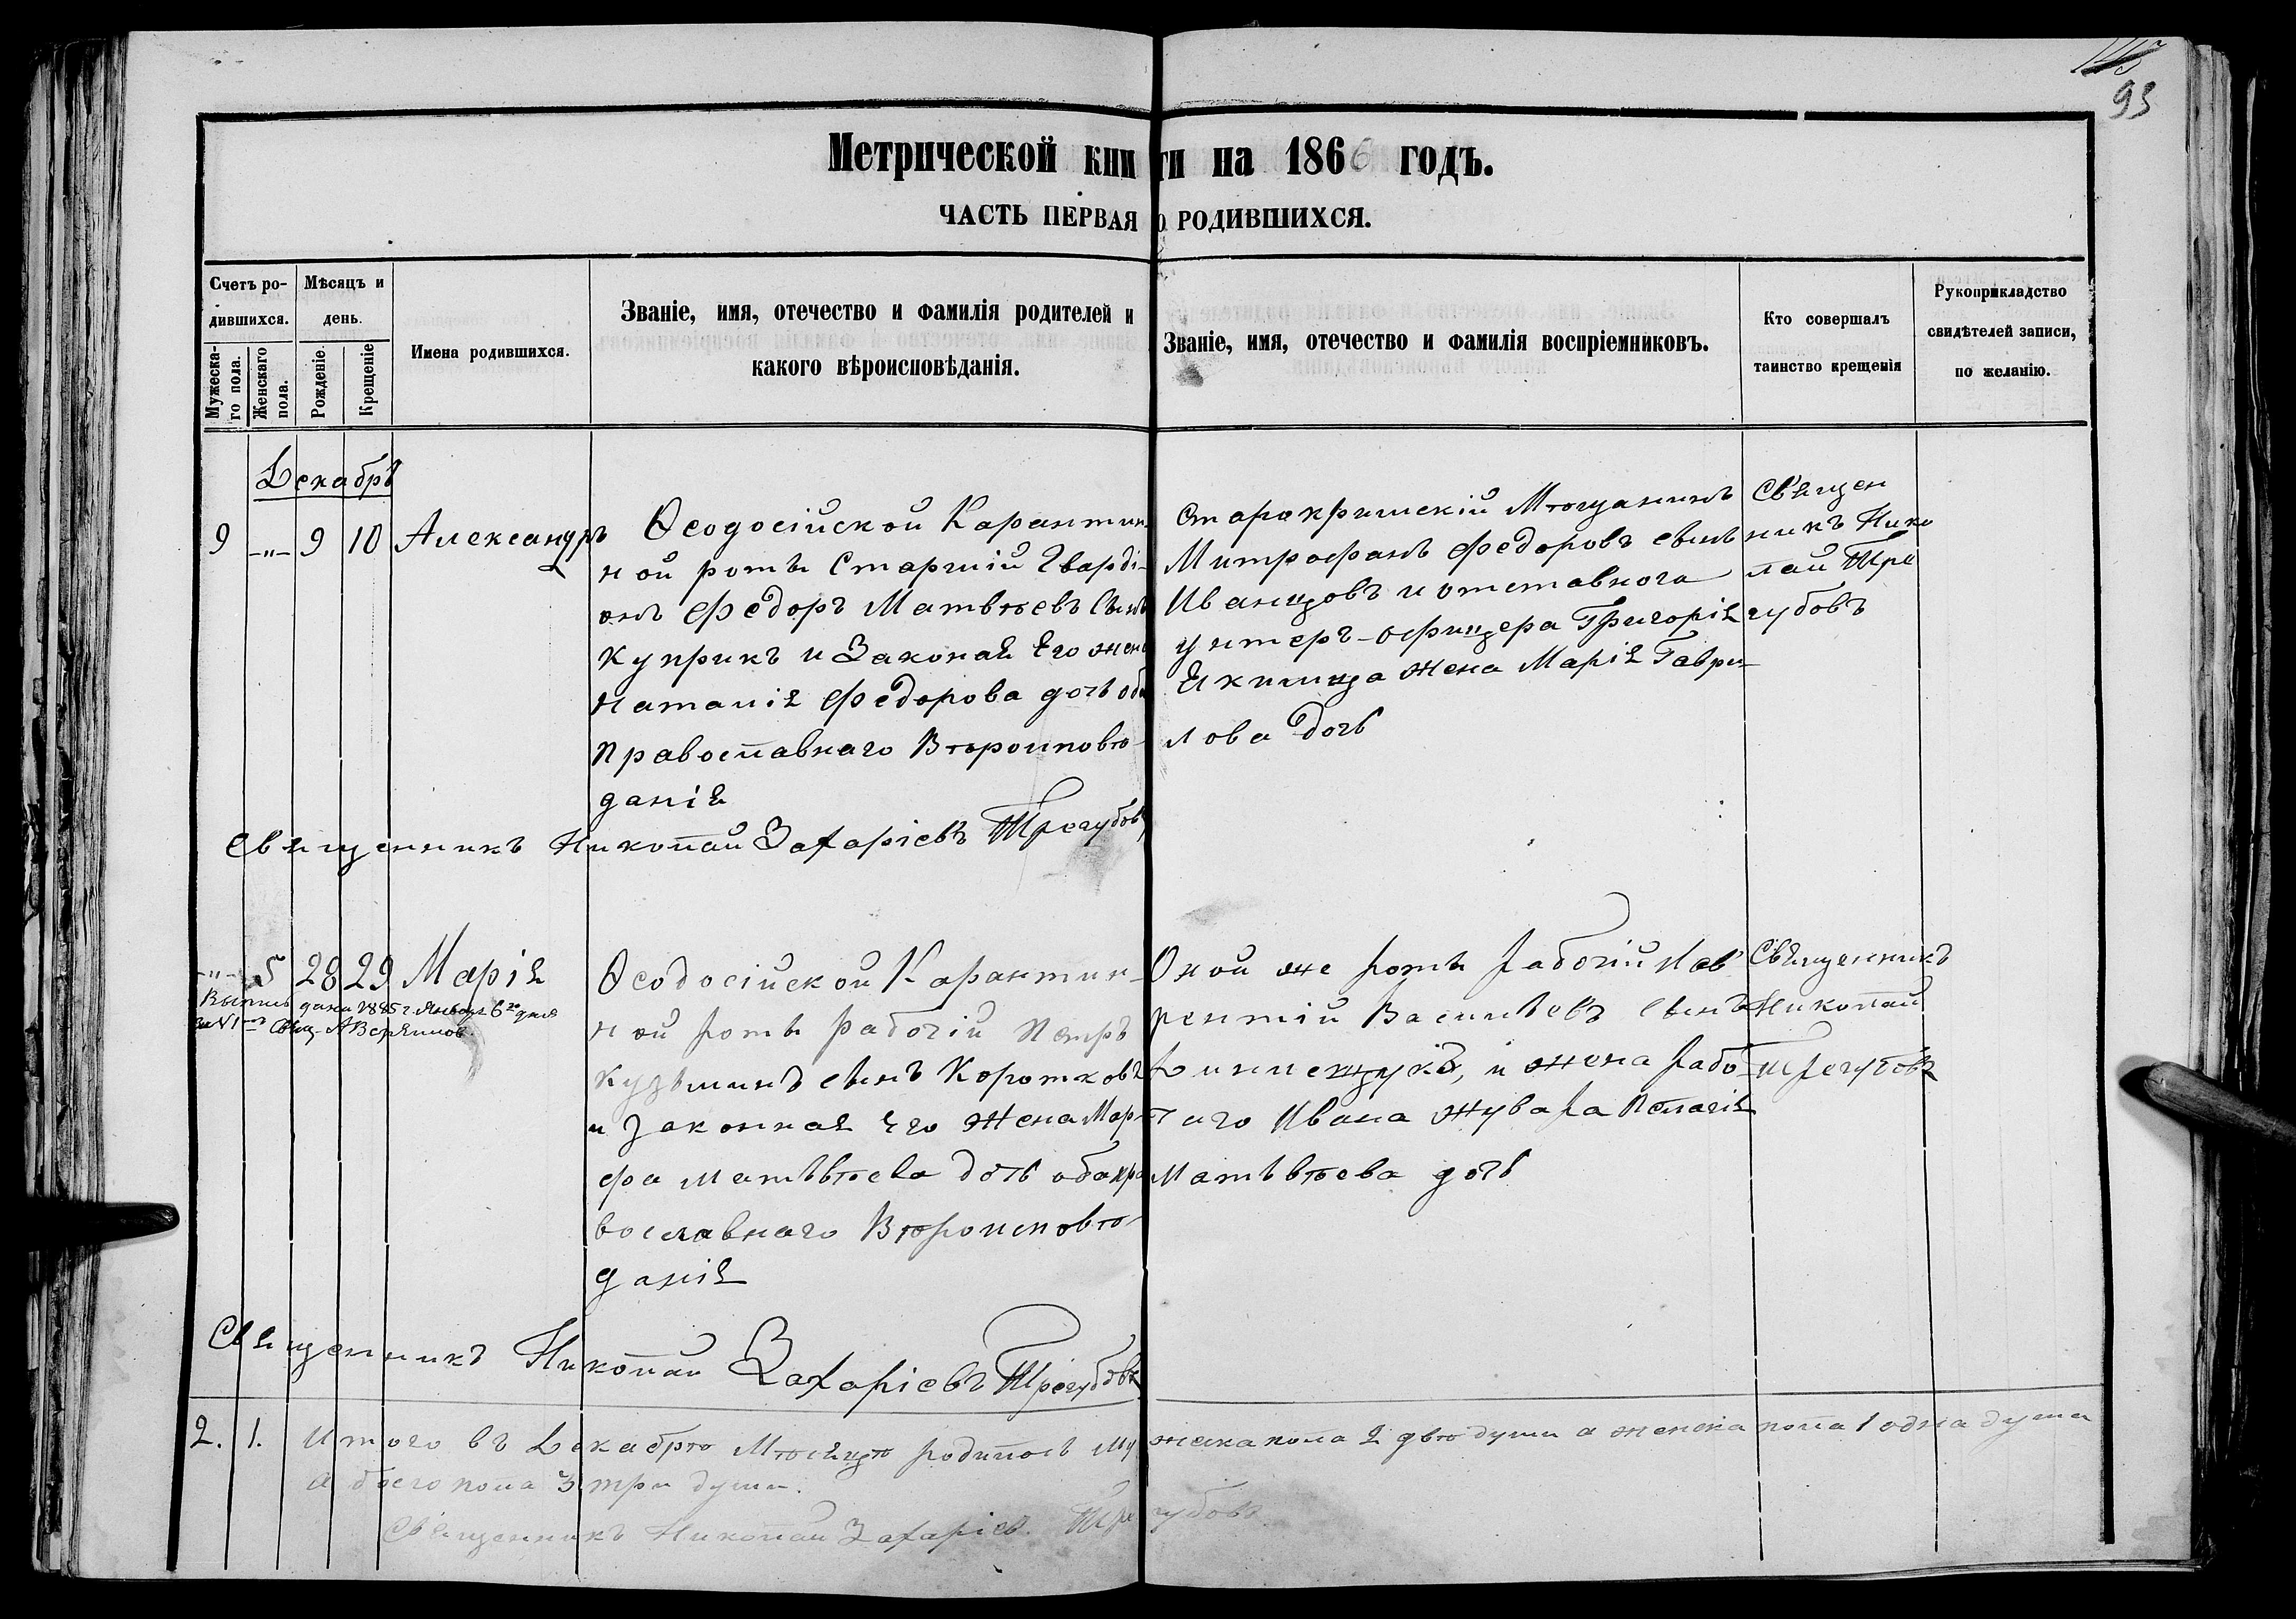 93
Метрической книги на 1866 годъ.
ЧАСТЬ ПЕРВАЯ О РОДИВШИХСЯ.
Счетъ ро-
дившихся.
Мужеска-
го пола.
Женскаго
пола.
Мѣсяцъ и
день.
Рожденіе.
Крещеніе
Имена родившихся.
Званіе, имя, отечество и фамилія родителей и
какого вѣроисповѣданія.
Званіе, имя, отечество и фамилія воспріемниковъ.
Кто совершалъ
таинство крещенія
Рукоприкладство
свидѣтелей записи,
по желанію.
Декабрь
9 -"- 9 10 Александръ
Ѳеодосійской Карантин
ной роты Старшій Гварді-
онъ Федоръ Матвѣевъ сынъ
Куприкъ и Законая Его жена
Наталія Федорова дочь оба
Православнаго Вѣроиповѣ-
данія
Старокрымскій Мѣщанинъ
Митрофанъ Федоровъ сынъ
Иванцовъ и отставнога
унтеръ-офицера Григорія
жена Марія Гаври-
лова дочь
Священ
никъ Нико
лай Тре
губовъ
Священникъ Николай Захаріевъ Трегубовъ
-"- 5 28 29 Марія
Выпись дана 1885 г. Января 6го дня
за №1 Свящ. А
Ѳеодосійской Карантин-
ной роты рабочій Петръ
Кузьминъ сынъ Коротковъ
и законная Его Жена Мар-
фа Матьвѣева дочь оба пра
вославнаго Вѣроисповѣ-
данія
Оной же роты рабочій Лав
рентій Васильевъ сынъ
и жена рабо
чаго Ивана Жувара Пелагія
Матьвѣева дочь
Священникъ
Николай
Трегубовъ
Священникъ Николай Захаріевъ Трегубовъ
2. 1. Итого въ Декабрѣ Мѣсяцѣ родилось мужеска пола 2 двѣ души а женска пола 1 одна душа
а обоего пола 3 три души.
Священникъ Николай Захаріев. Трегубовъ